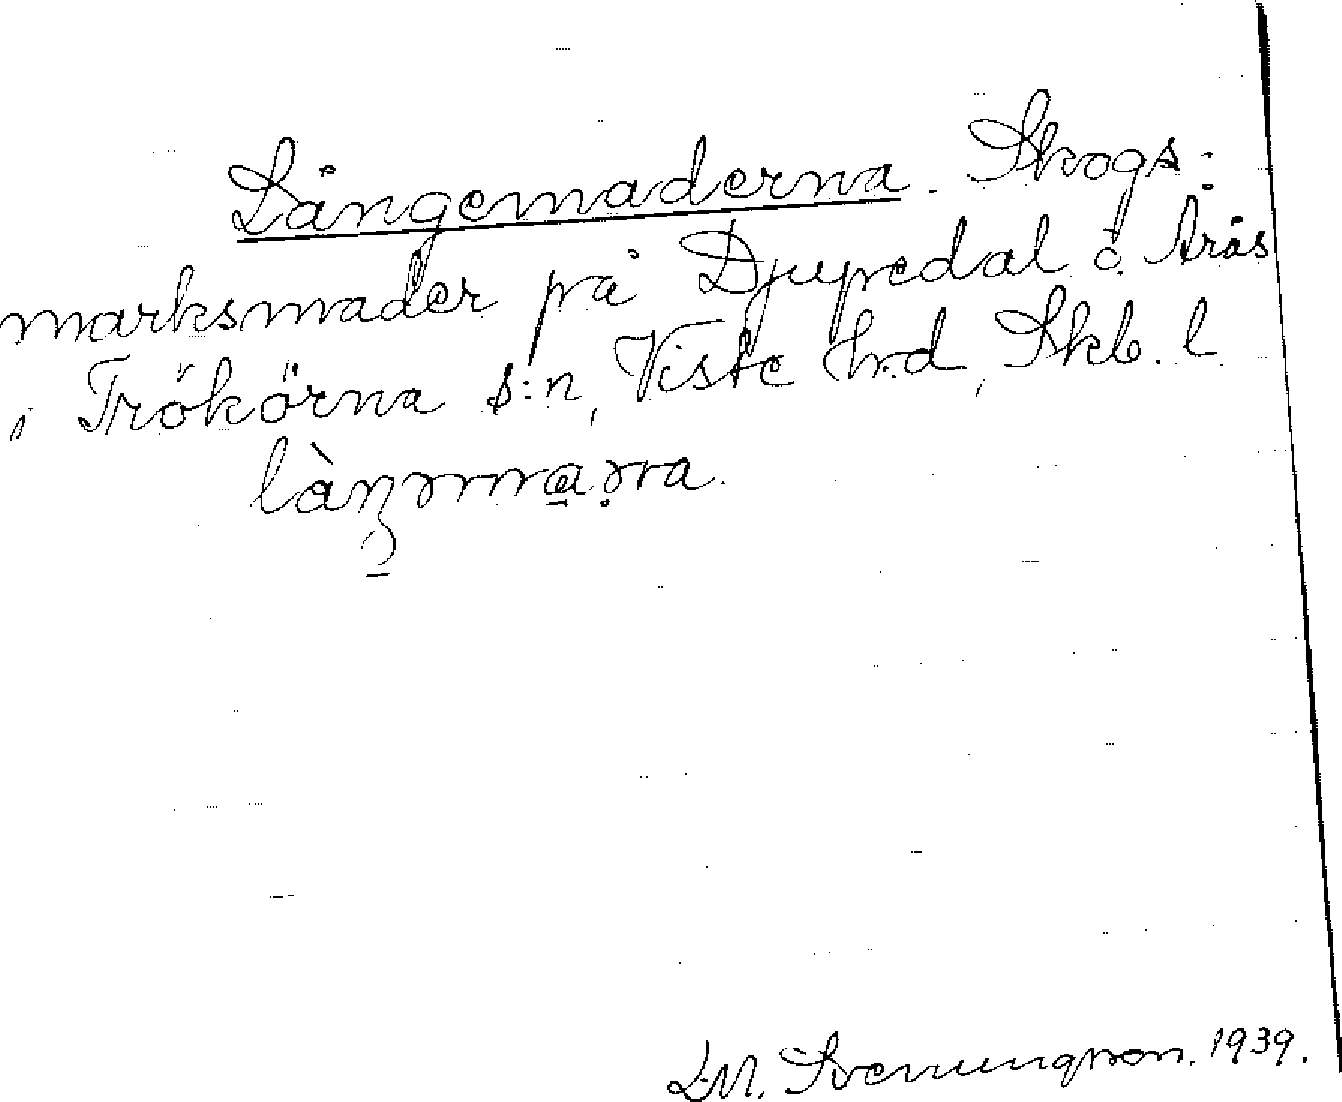 Långemaderna. Skogs:
marksmader på Djupedal o. Årås
i Trökörna s:n, Viste hrd, Skb. l.
Svenungson. 1939.